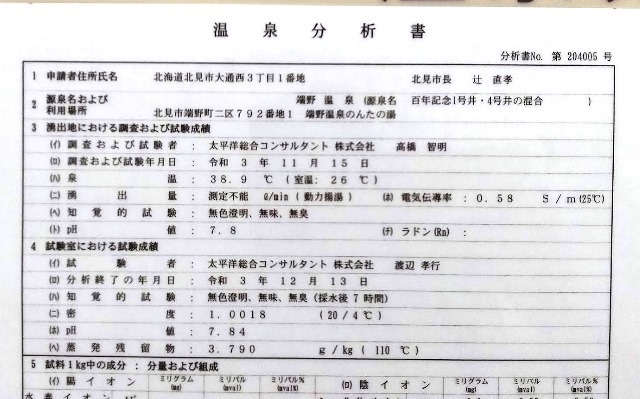 温泉分析書
分析書No. 第 204005 号
1 申請者住所氏名 北海道北見市大通西3丁目1番地 北見市長 辻 直孝
2 源泉名および利用場所 端野 温泉 (源泉名 百年記念1号井・4号井の混合 )
北見市端野町二区792番地1 端野温泉のんたの湯
3 湧出地における調査および試験成績
(イ) 調査および試験者 : 太平洋総合コンサルタント 株式会社 高橋 智明
(ロ) 調査および試験年月日 : 令和 3年 11月 15日
(ハ) 泉温 : 38.9 ℃ (室温: 26 ℃)
(ニ) 湧出量 : 測定不能 ℓ/min (動力揚湯) (ホ) 電気伝導率 : 0.58 S/m(25℃)
(ヘ) 知覚的試験 : 無色澄明、無味、無臭
(ト) pH値 : 7.8 (チ) ラドン(Rn) :
4 試験室における試験成績
(イ) 試験者 : 太平洋総合コンサルタント 株式会社 渡辺 孝行
(ロ) 分析終了の年月日 : 令和 3年 12月 13日
(ハ) 知覚的試験 : 無色澄明、無味、無臭 (採水後7時間)
(ニ) 密度 : 1.0018 (20/4℃)
(ホ) pH値 : 7.84
(ヘ) 蒸発残留物 : 3.790 g/kg (110 ℃)
5 試料1kg中の成分 : 分量および組成
(イ) 陽イオン ミリグラム(mg) ミリバル(mval) ミリバル%(mval%) (ロ) 陰イオン ミリグラム(mg) ミリバル(mval) ミリバル%(mval%)